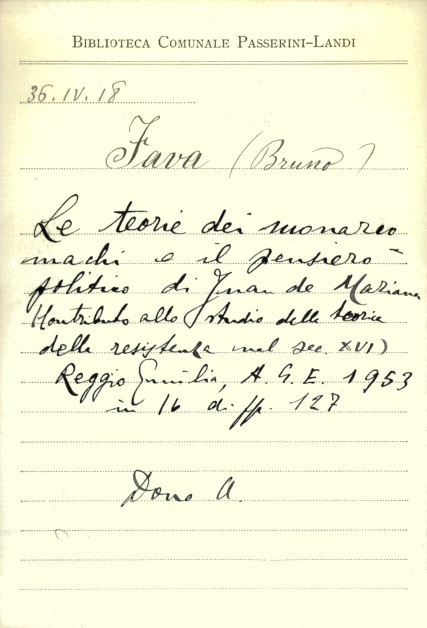 BIBLIOTECA COMUNALE PASSERINI-LANDI
36.IV.18
Fava (Bruno)
Le teorie dei monarco
machi e il pensiero
politico di Juan de Mariana
(Contributo allo studio delle teorie
della resistenza nel sec. XVI)
Reggio Emilia, A. G. E. 1953
in 16 di pp. 127
Dono A.